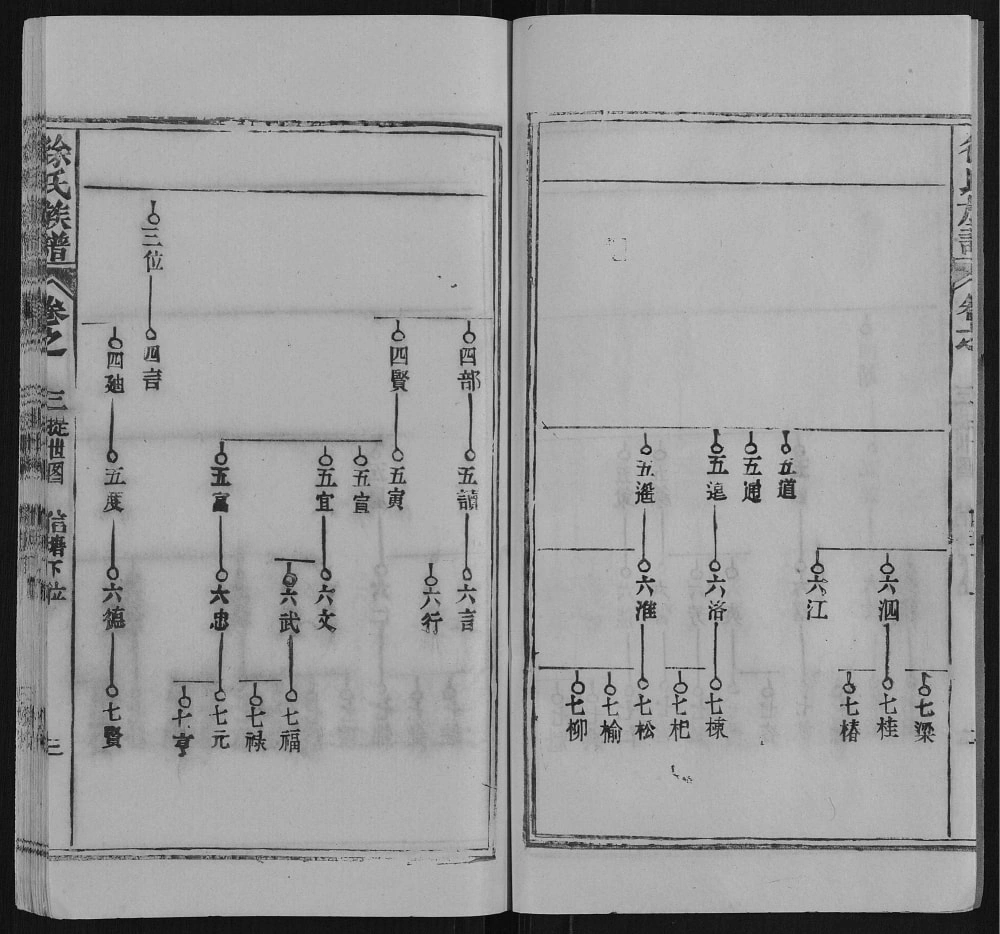 七梁
六泗
七桂
七椿
六江
五道
五通
五遠
六洛
七棟
七杞
五遙
六淮
七松
七榆
七柳
四部
五讀
六言
六行
四賢
五寅
五宣
五宜
六文
六武
七福
七祿
五富
六忠
七元
七亨
三位
四言
四廸
五度
六德
七賢
徐氏族譜
卷之一
三從世图
信塘下位
三